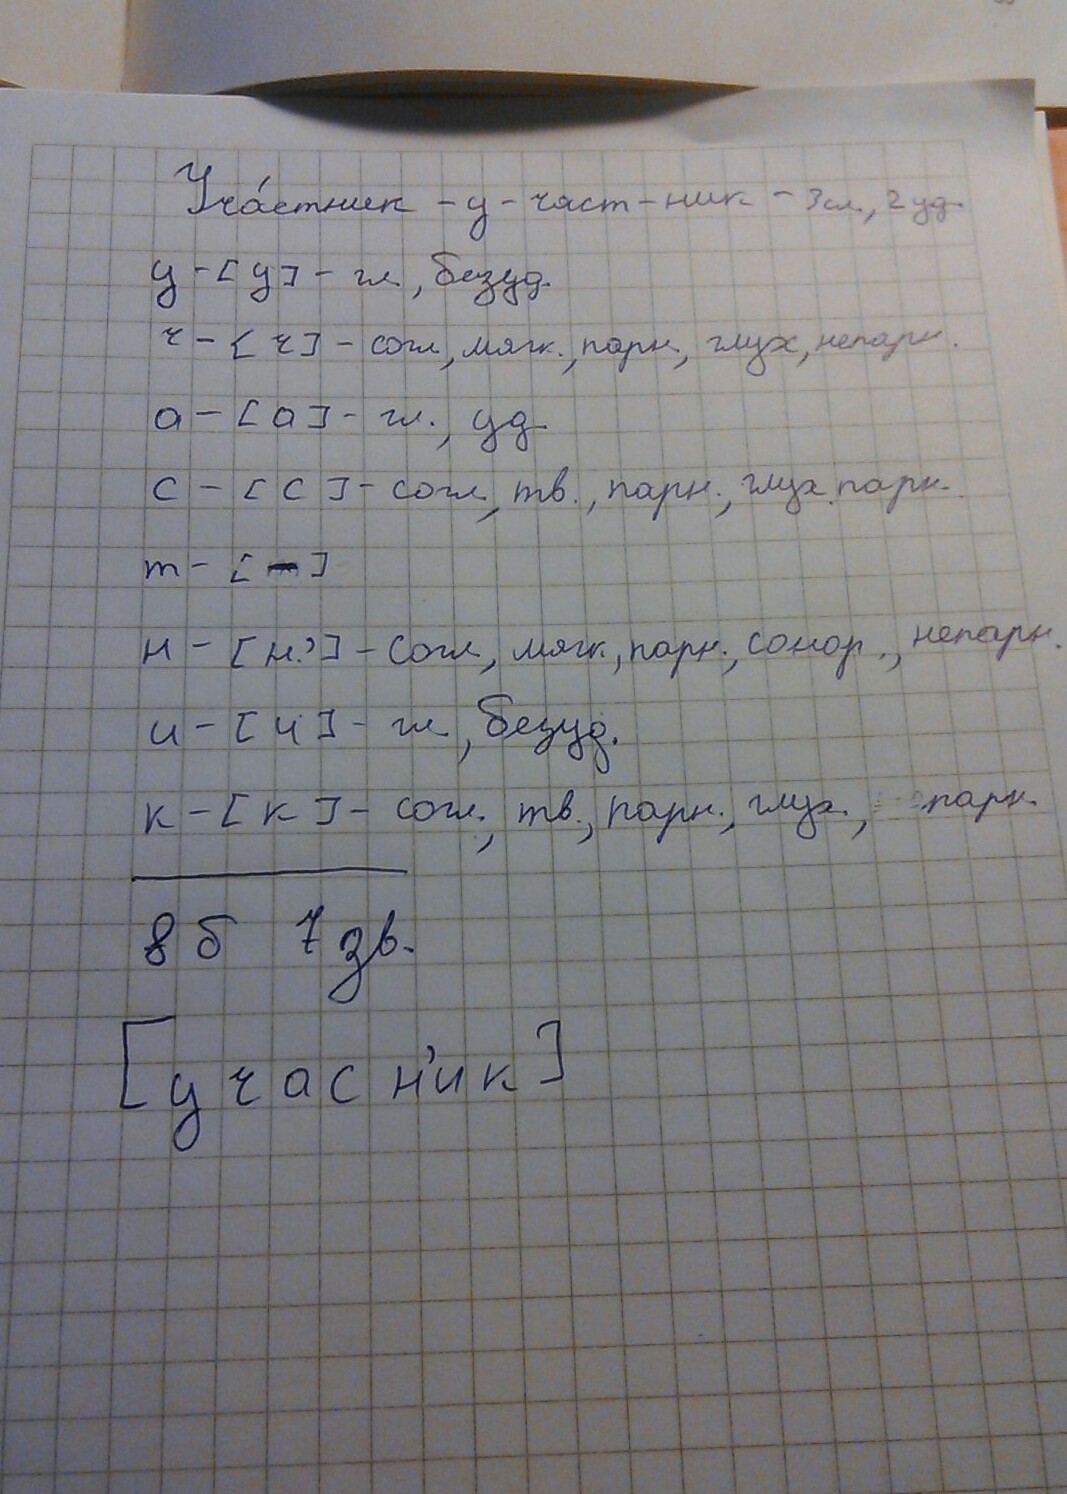 Уча́стник - у - част - ник - 3 сл., 2 уд.
у - [у] - гл., безуд.
ч - [ч] - согл., мягк., парн., глух., непарн.
а - [а] - гл., уд.
с - [с] - согл., тв., парн., глух. парн.
т - [-]
н - [н'] - согл., мягк., парн., сонор., непарн.
и - [и] - гл., безуд.
к - [к] - согл., тв., парн., глух., парн.
8 б 7 зв.
[учасн'ик]